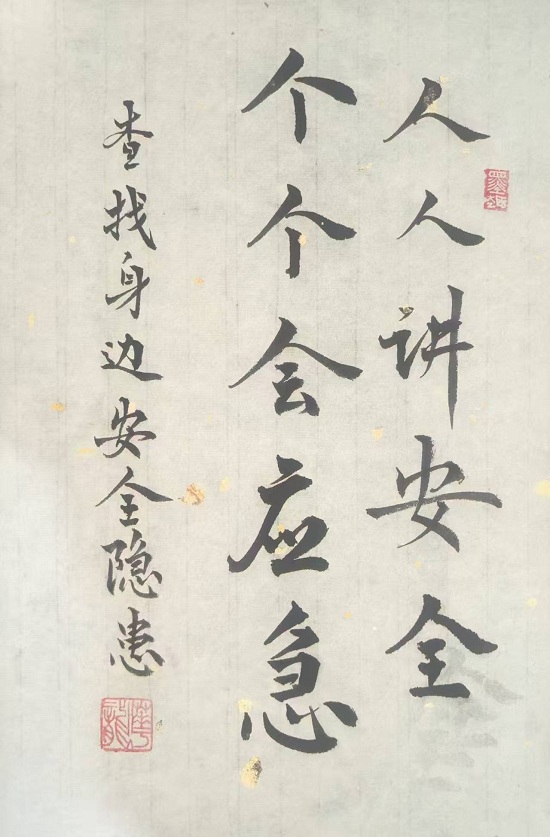 人人讲安全
个个会应急
查找身边安全隐患